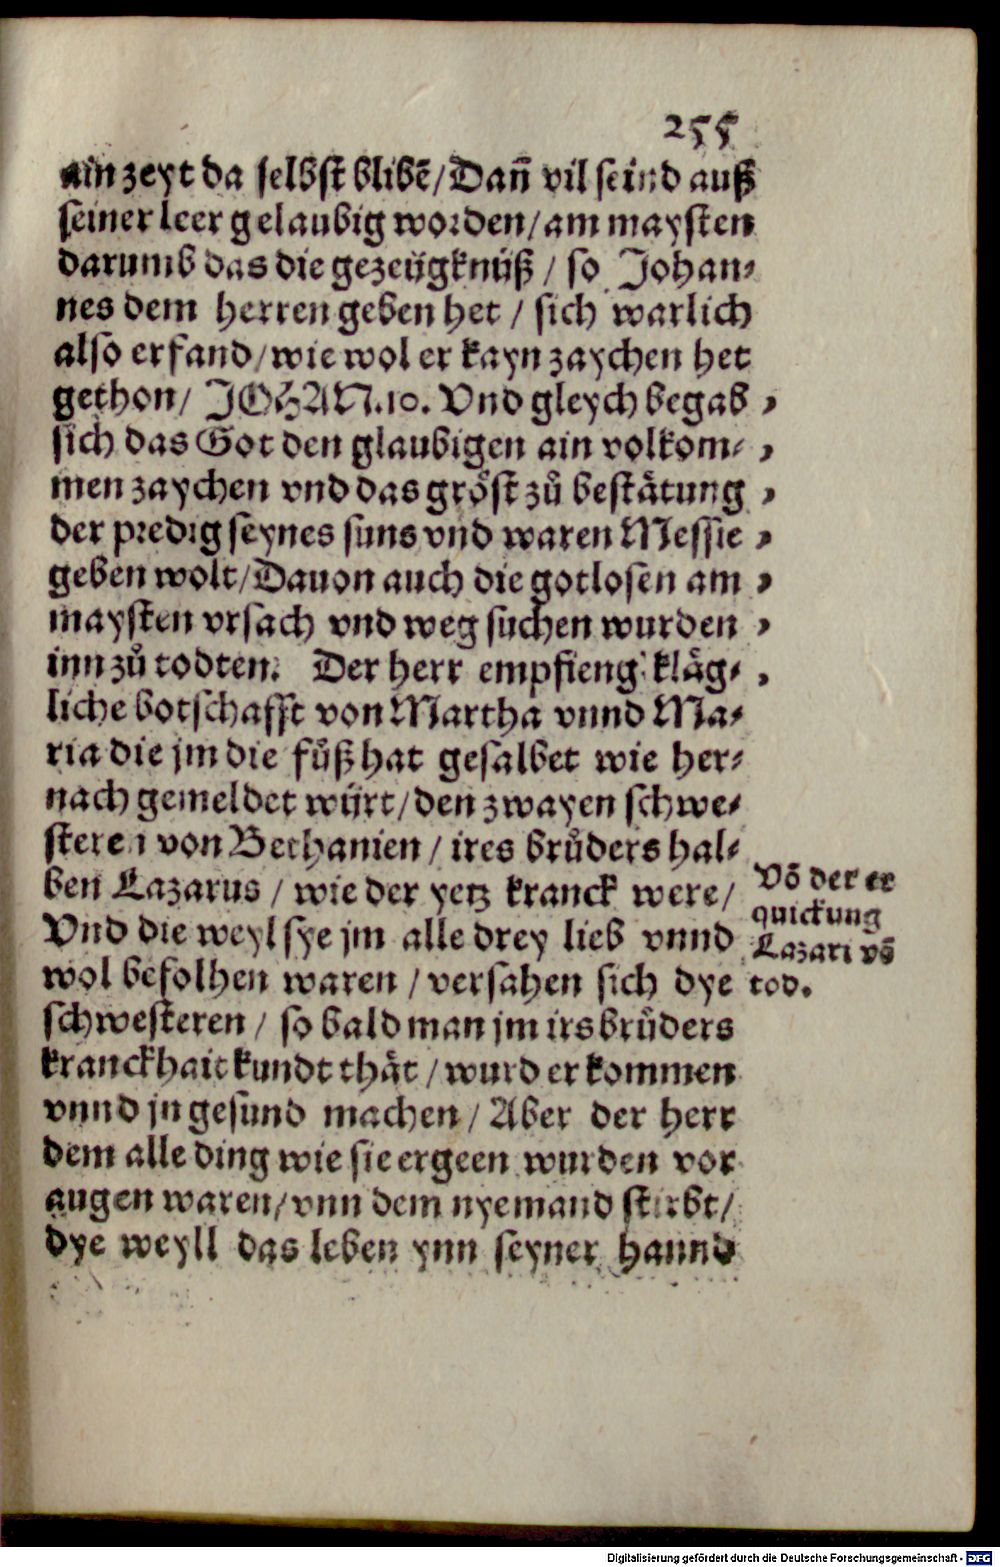 255
ain zeyt da selbst blibē/Dañ vil seind auß
seiner leer gelaubig worden/am maysten
darumb das die gezeügknüß / so Johan-
nes dem herren geben het / sich warlich
also erfand/wie wol er kayn zaychen het
gethon/ JOHAN.10. Vnd gleych begab
sich das Got den glaubigen ain volkom-
men zaychen vnd das gröst zů bestätung
der predig seynes suns vnd waren Messie
geben wolt/Dauon auch die gotlosen am
maysten vrsach vnd weg suchen wurden
inn zů todten. Der herr empfieng kläg-
liche botschafft von Martha vnnd Ma-
ria die jm die fůß hat gesalbet wie her-
nach gemeldet würt/den zwayen schwe-
steren von Bethanien / ires brůders hal-
ben Lazarus / wie der yetz kranck were/
Vnd die weyl sye jm alle drey lieb vnnd
wol befolhen waren / versahen sich dye
schwesteren / so bald man jm irs brůders
kranckhait kundt thät / wurd er kommen
vnnd jn gesund machen / Aber der herr
dem alle ding wie sie ergeen wurden vor
augen waren/vnn dem nyemand stirbt/
dye weyll das leben ynn seyner hannd
Võ der er
quickung
Lazari võ
tod.
Digitalisierung gefördert durch die Deutsche Forschungsgemeinschaft - DFG